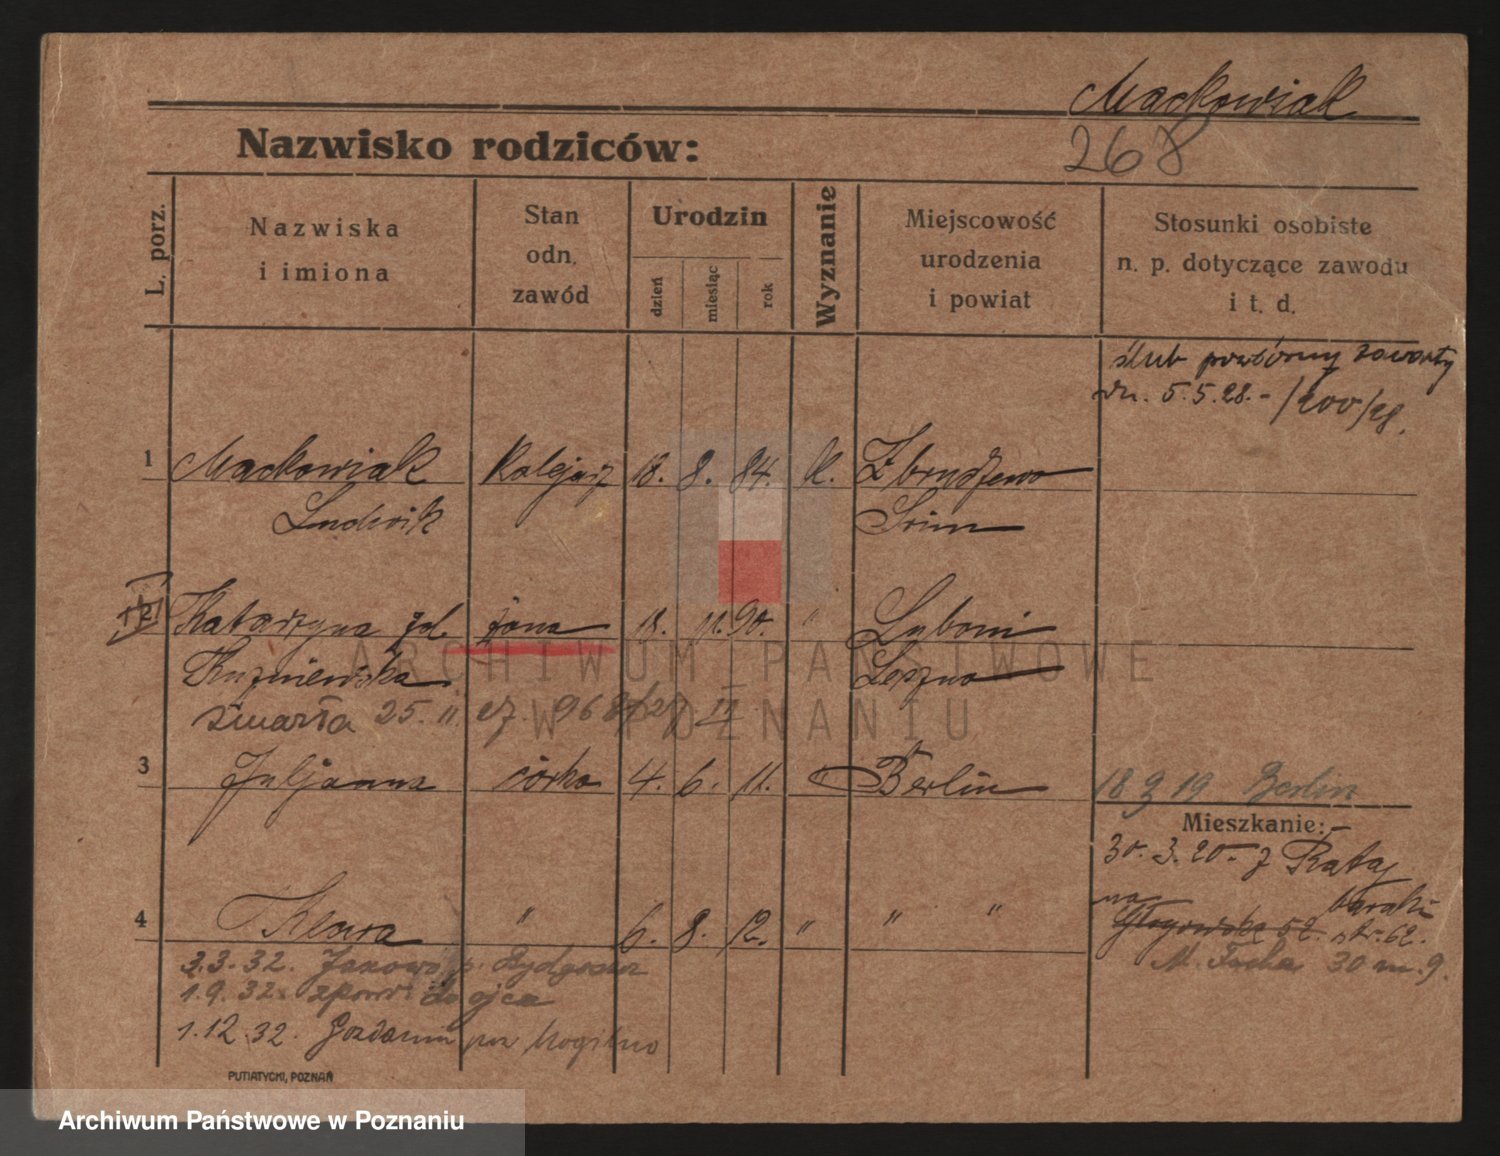 Maćkowiak
Nazwisko rodziców:
268
L. porz.
Nazwiska
i imiona
Stan
odn.
zawód
Urodzin
dzień
miesiąc
rok
Wyznanie
Miejscowość
urodzenia
i powiat
Stosunki osobiste
n. p. dotyczące zawodu
i t. d.
ślub powtórny zawarty
dn. 5.5.28.- /200/28.
1 Maćkowiak Kolejarz 18. 8. 84. K. Zbrudzewo
Ludwik Śrem
2 Katarzyna zd. żona 18. 11. 90. " Luboni
Kuźniewska Leszno
zmarła 25.11.27. 968/27 II
3 Juljanna córka 4. 6. 11. Berlin
18 3 19 Berlin
Mieszkanie:
30.3.20. z Rataj
na baraki
Głogowska 52. str. 62.
M. Focha 30 m. 9.
4 Klara " 6. 8. 12. " " "
3.3.32. Janowo p. Bydgoszcz
1.9.32. zpowr. do ojca
1.12.32. Gozdanin pow Mogilno
PUTIATYCKI, POZNAŃ
ARCHIWUM PAŃSTWOWE
W POZNANIU
Archiwum Państwowe w Poznaniu